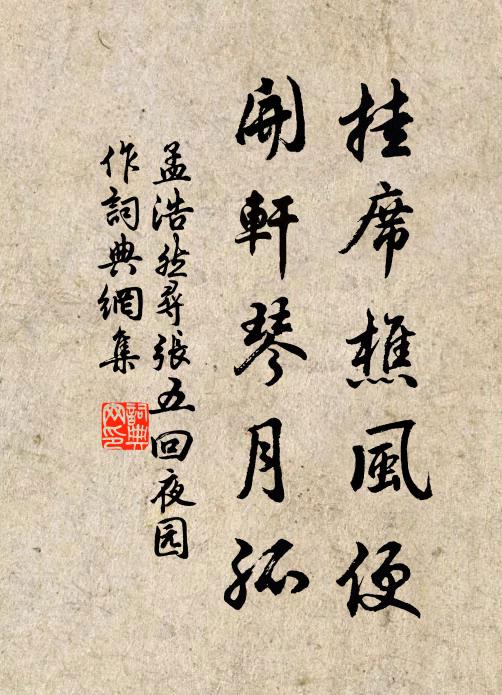 挂席樵風便
開軒琴月孤
孟浩然尋張五回夜园
作詞典網集
詞典网印